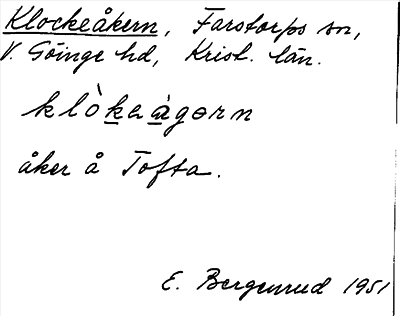 Klockeåkern, Farstorps sn,
V. Göinge hd, Krist. län.
klòkaàgərn
åker å Tofta.
E. Bergenrud 1951